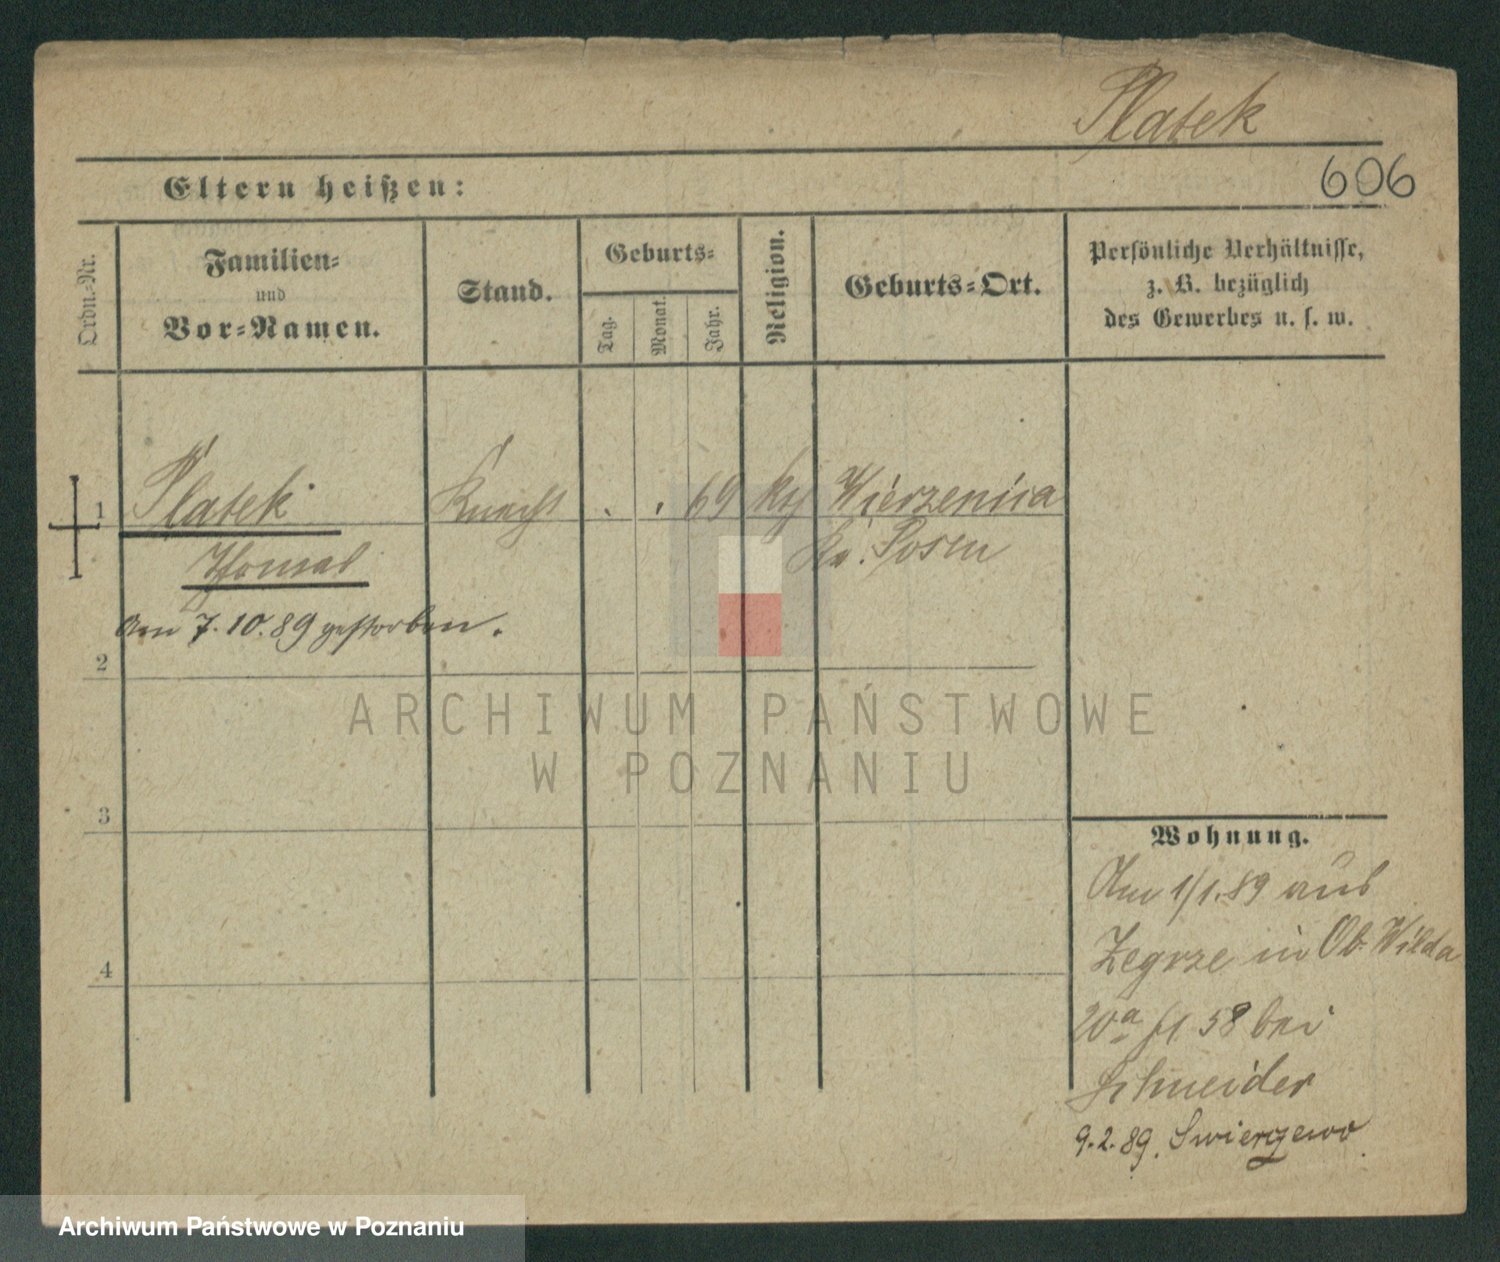 Platek
606
Eltern heißen:
Ordn.-Nr.
Familien-
und
Vor-Namen.
Stand.
Geburts-
Tag.
Monat.
Jahr.
Religion.
Geburts-Ort.
Persönliche Verhältnisse,
z. B. bezüglich
des Gewerbes u. s. w.
1 Platek Knecht . . 69 kth Wierzenica
Thomas Kr. Posen
Am 7.10.89 gestorben.
2
ARCHIWUM PAŃSTWOWE
W POZNANIU
3
Wohnung.
Am 1/1.89 aus
4
Zegrze in Ob. Wilda
20a 58 bei
Schneider
9.2.89. Swierczewo
Archiwum Państwowe w Poznaniu